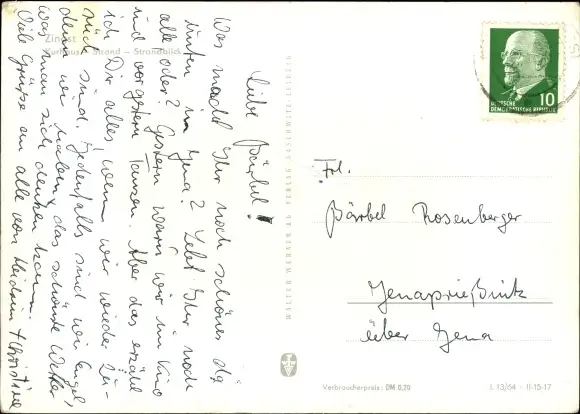 Zingst
Kurhaus - Strand - Strandblick
Liebe Bärbel!
Was macht Ihr noch schönes da
unten in Jena? Lebt Ihr noch
alle oder? Gestern waren wir im Kino
und vorgestern tanzen. Aber das erzähle
ich Dir alles, wenn wir wieder zu-
rück sind. Jedenfalls sind wir Engel,
denn wir haben das schönste Wetter
was man sich denken kann.
Viele Grüße an alle von Heidrun + Christine
WALTER WERNER KG VERLAG GASCHWITZ-LEIPZIG
DEUTSCHE
DEMOKRATISCHE REPUBLIK
10
Frl.
Bärbel Rosenberger
Jenaprießnitz
über Jena
Verbraucherpreis: DM 0,20
L 13/64 - II-15-17